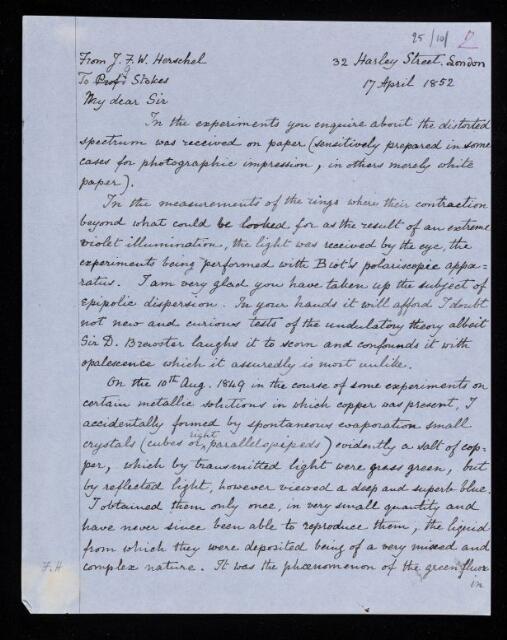 25/10/
From J. F. W. Herschel
32 Harley Street, London
To Profr Stokes
17 April 1852
My dear Sir
In the experiments you enquire about the distorted
spectrum was received on paper (sensitively prepared in some
cases for photographic impression, in others merely white
paper).
In the measurements of the rings where their contraction
beyond what could be looked for as the result of an extreme
violet illumination, the light was received by the eye, the
experiments being performed with Biot's polariscopic appa=
ratus. I am very glad you have taken up the subject of
Epipolic dispersion. In your hands it will afford I doubt
not new and curious tests of the undulatory theory albeit
Sir D. Brewster laughs it to scorn and confounds it with
opalescence which it assuredly is most unlike.
On the 10th Aug. 1849 in the course of some experiments on
certain metallic solutions in which copper was present, I
accidentally formed by spontaneous evaporation small
crystals (cubes or right parallelopipeds) evidently a salt of cop=
per, which by transmitted light were grass green, but
by reflected light, however viewed a deep and superb blue.
I obtained them only once, in very small quantity and
have never since been able to reproduce them, the liquid
from which they were deposited being of a very mixed and
complex nature. It was the phænomenon of the green fluor
in